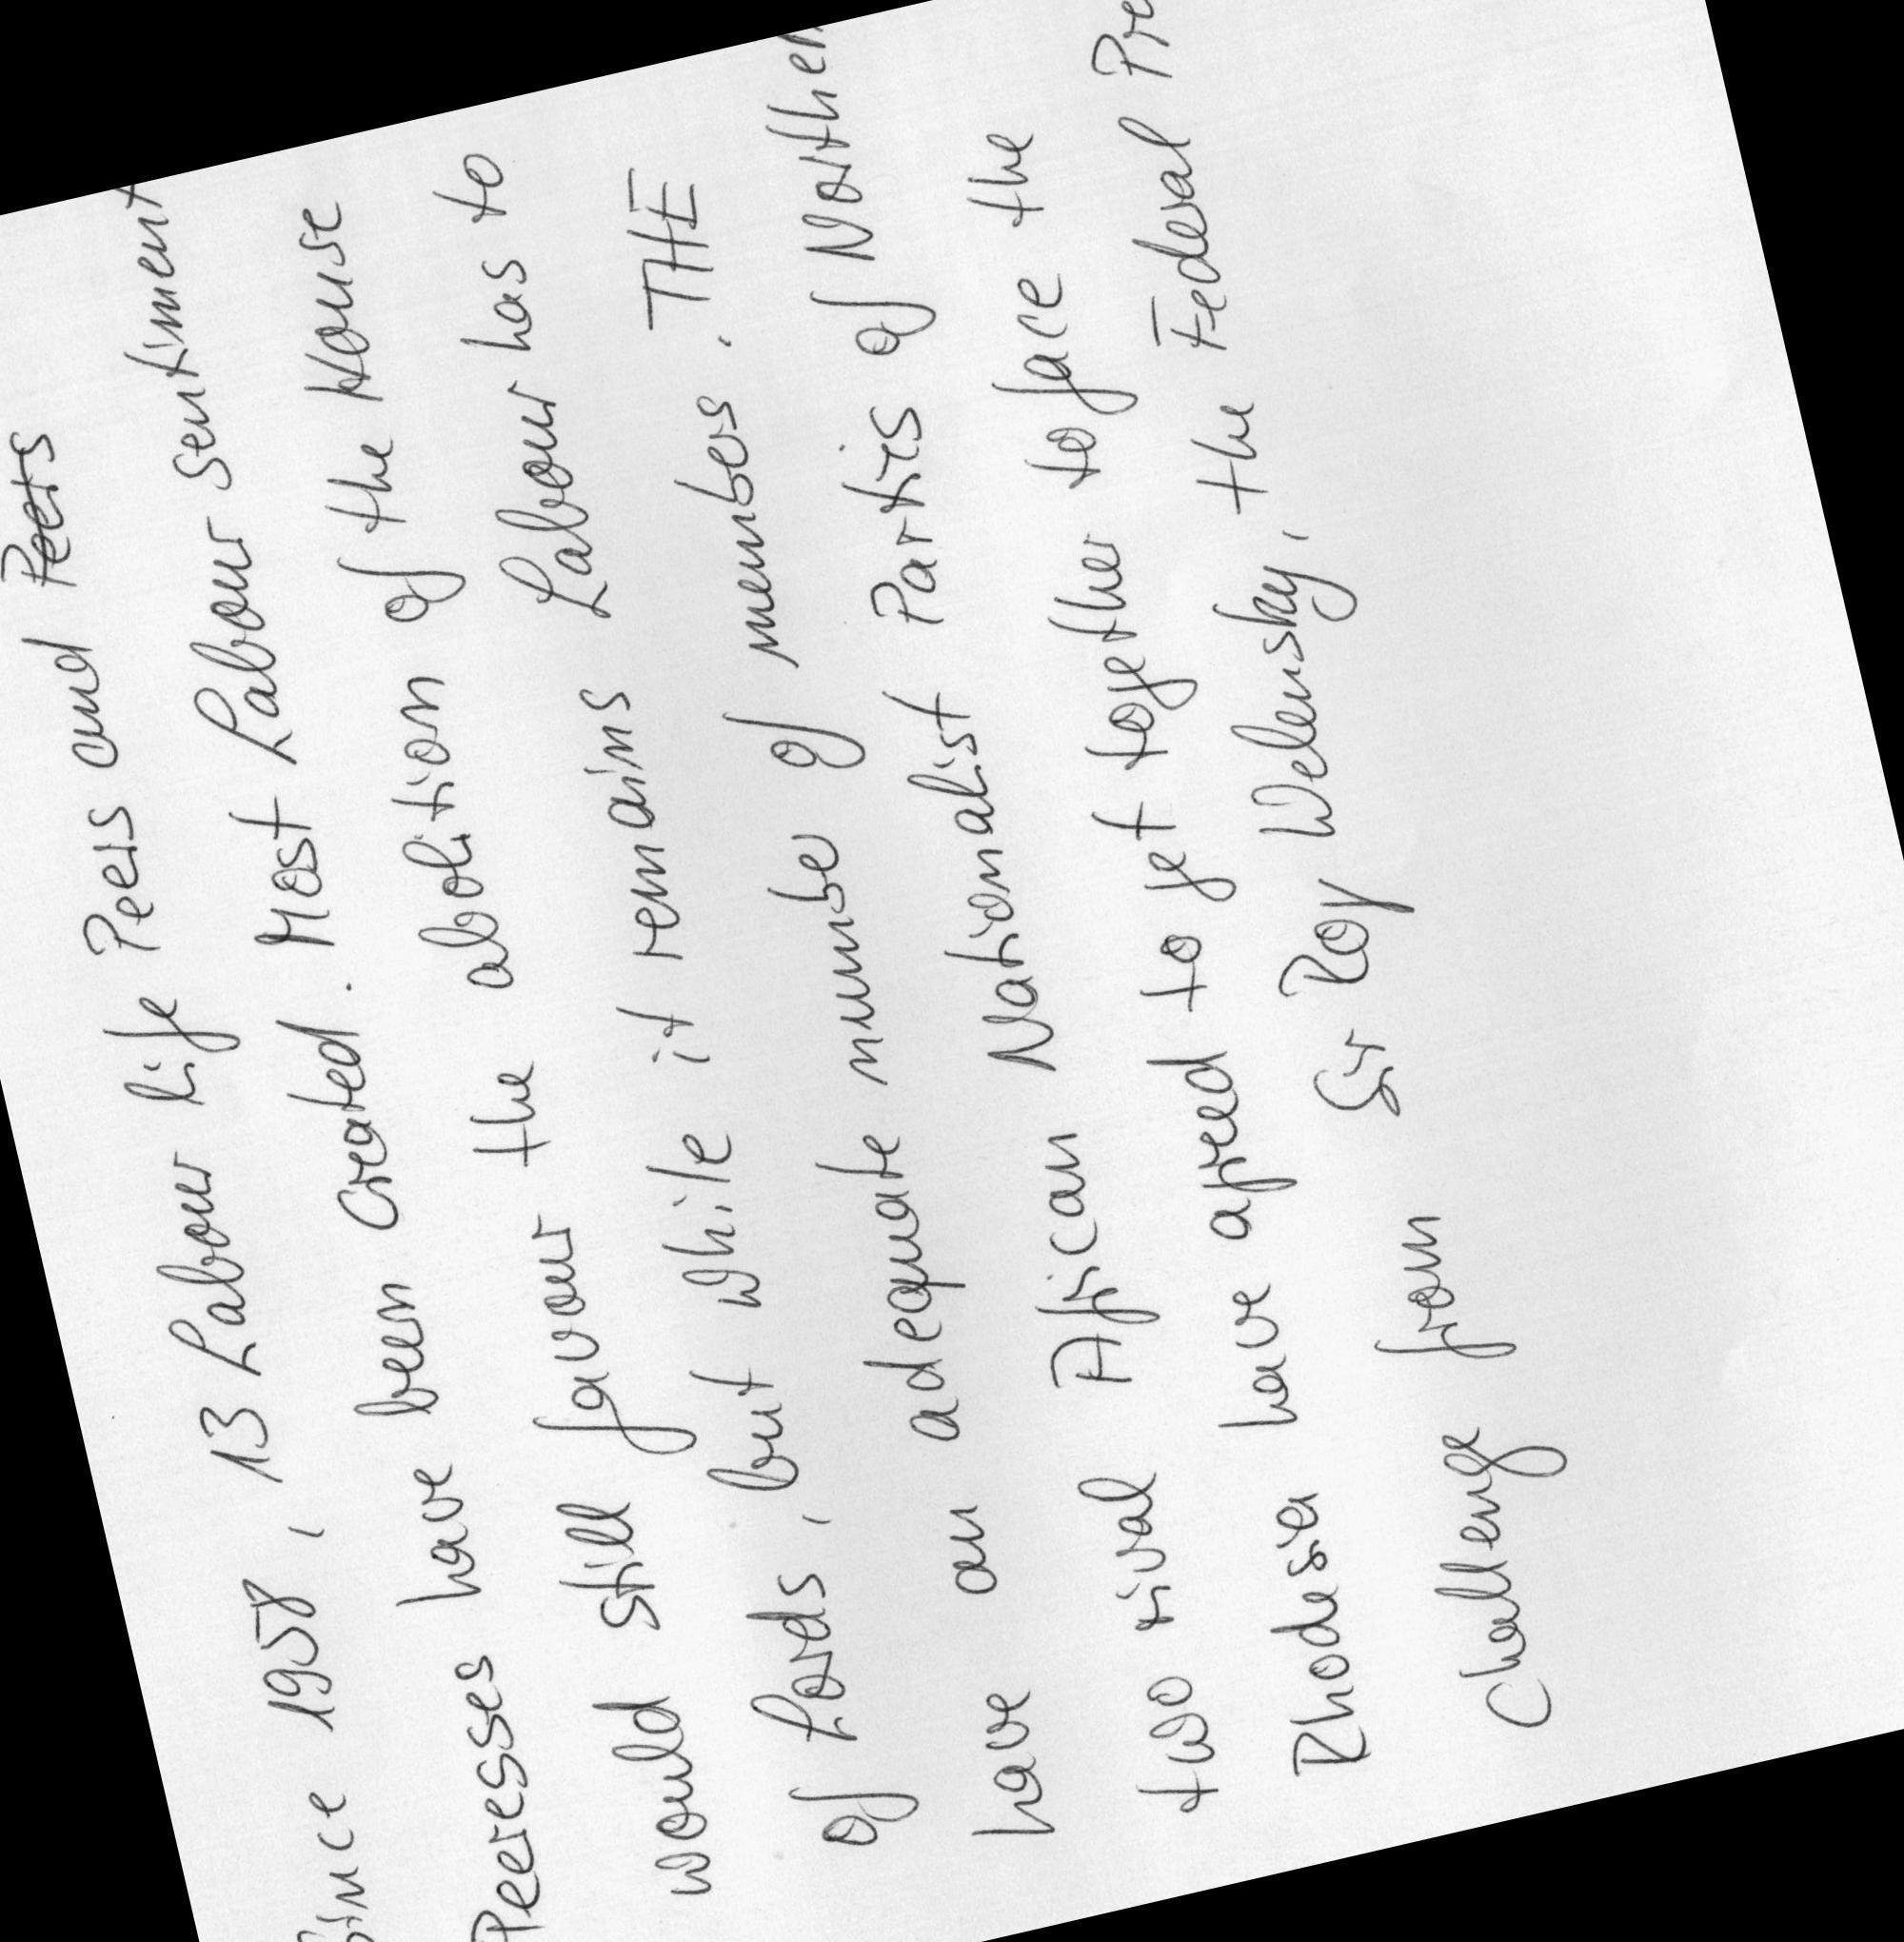 Since 1958, 13 Labour life Peers and Peers
Peeresses have been created. Most Labour sentiment
would still favour the abolition of the House
of Lords, but while it remains Labour has to
have an adequate number of members. THE
two rival African Nationalist Parties of Northern
Rhodesia have agreed to get together to face the
Challenge from Sir Roy Welensky, the Federal Pre